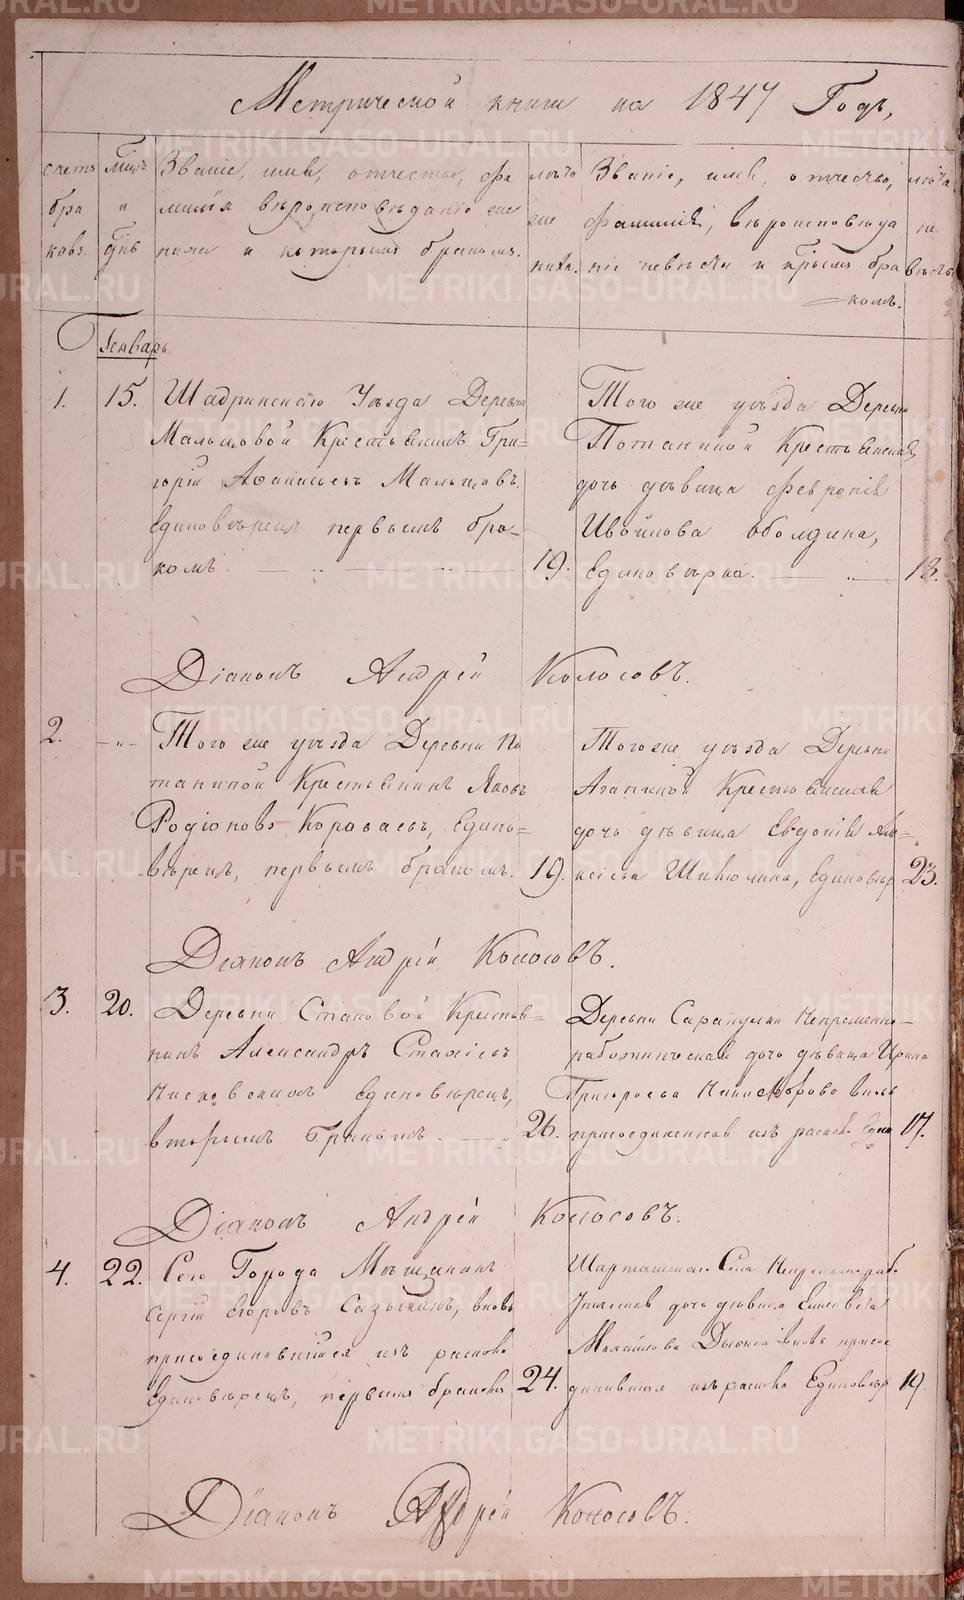 Метрической книги на 1847 Годъ,
счетъ браковъ.
Мцъ и днь
Званіе, имя, отчество, фа
милія вѣроисповѣданіе же
ниха и которымъ бракомъ.
лѣта
же
ниха.
Званіе, имя, отчество,
фамилія, вѣроисповѣда
ніе невѣсты и кѣрымъ бра
комъ.
лѣта
не
вѣсты
Генварь
1. 15. Шадринскаго Уѣзда Деревни
Мальцовой Крестьянинъ Гри=
горій Афанасьевъ Мальцовъ.
Единовѣрецъ первымъ бра-
комъ. 19.
Того же уѣзда Деревни
Потаниной Крестьянская
дочь дѣвица Февронія
Ивойлова Оболдина,
Единовѣрка. 18.
Діаконъ Андрей Колосовъ.
2. -"- Того же уѣзда Деревни По
таниной Крестьянинъ Яковъ
Родіоновъ Короваевъ, Едино=
вѣрецъ, первымъ бракомъ. 19.
Того же уѣзда Деревни
Крестьянская
дочь дѣвица Евдокія Але=
ксіева Единовѣр 23.
Діаконъ Андрей Колосовъ.
3. 20. Деревни Становой Крестья=
нинъ Александръ
Единовѣрецъ,
вторымъ Бракомъ. 26.
Деревни Сарапулки Непремѣнно=
работническая дочь дѣвица Ирина
Никифорова вновь
присоединенная изъ раскола Един 17.
Діаконъ Андрей Колосовъ.
4. 22. Сего Города Мѣщанинъ
Сергій Егоровъ Сазыкинъ, вновь
присоединившійся изъ раскола
Единовѣрецъ, первымъ бракомъ 24.
Шарташскаго Села Непремѣннораб
дочь дѣвица Елисавета
Михайлова вновь присое
динившаяся изъ раскола Единовѣр 19.
Діаконъ Андрей Колосовъ.
METRIKI.GASO-URAL.RU